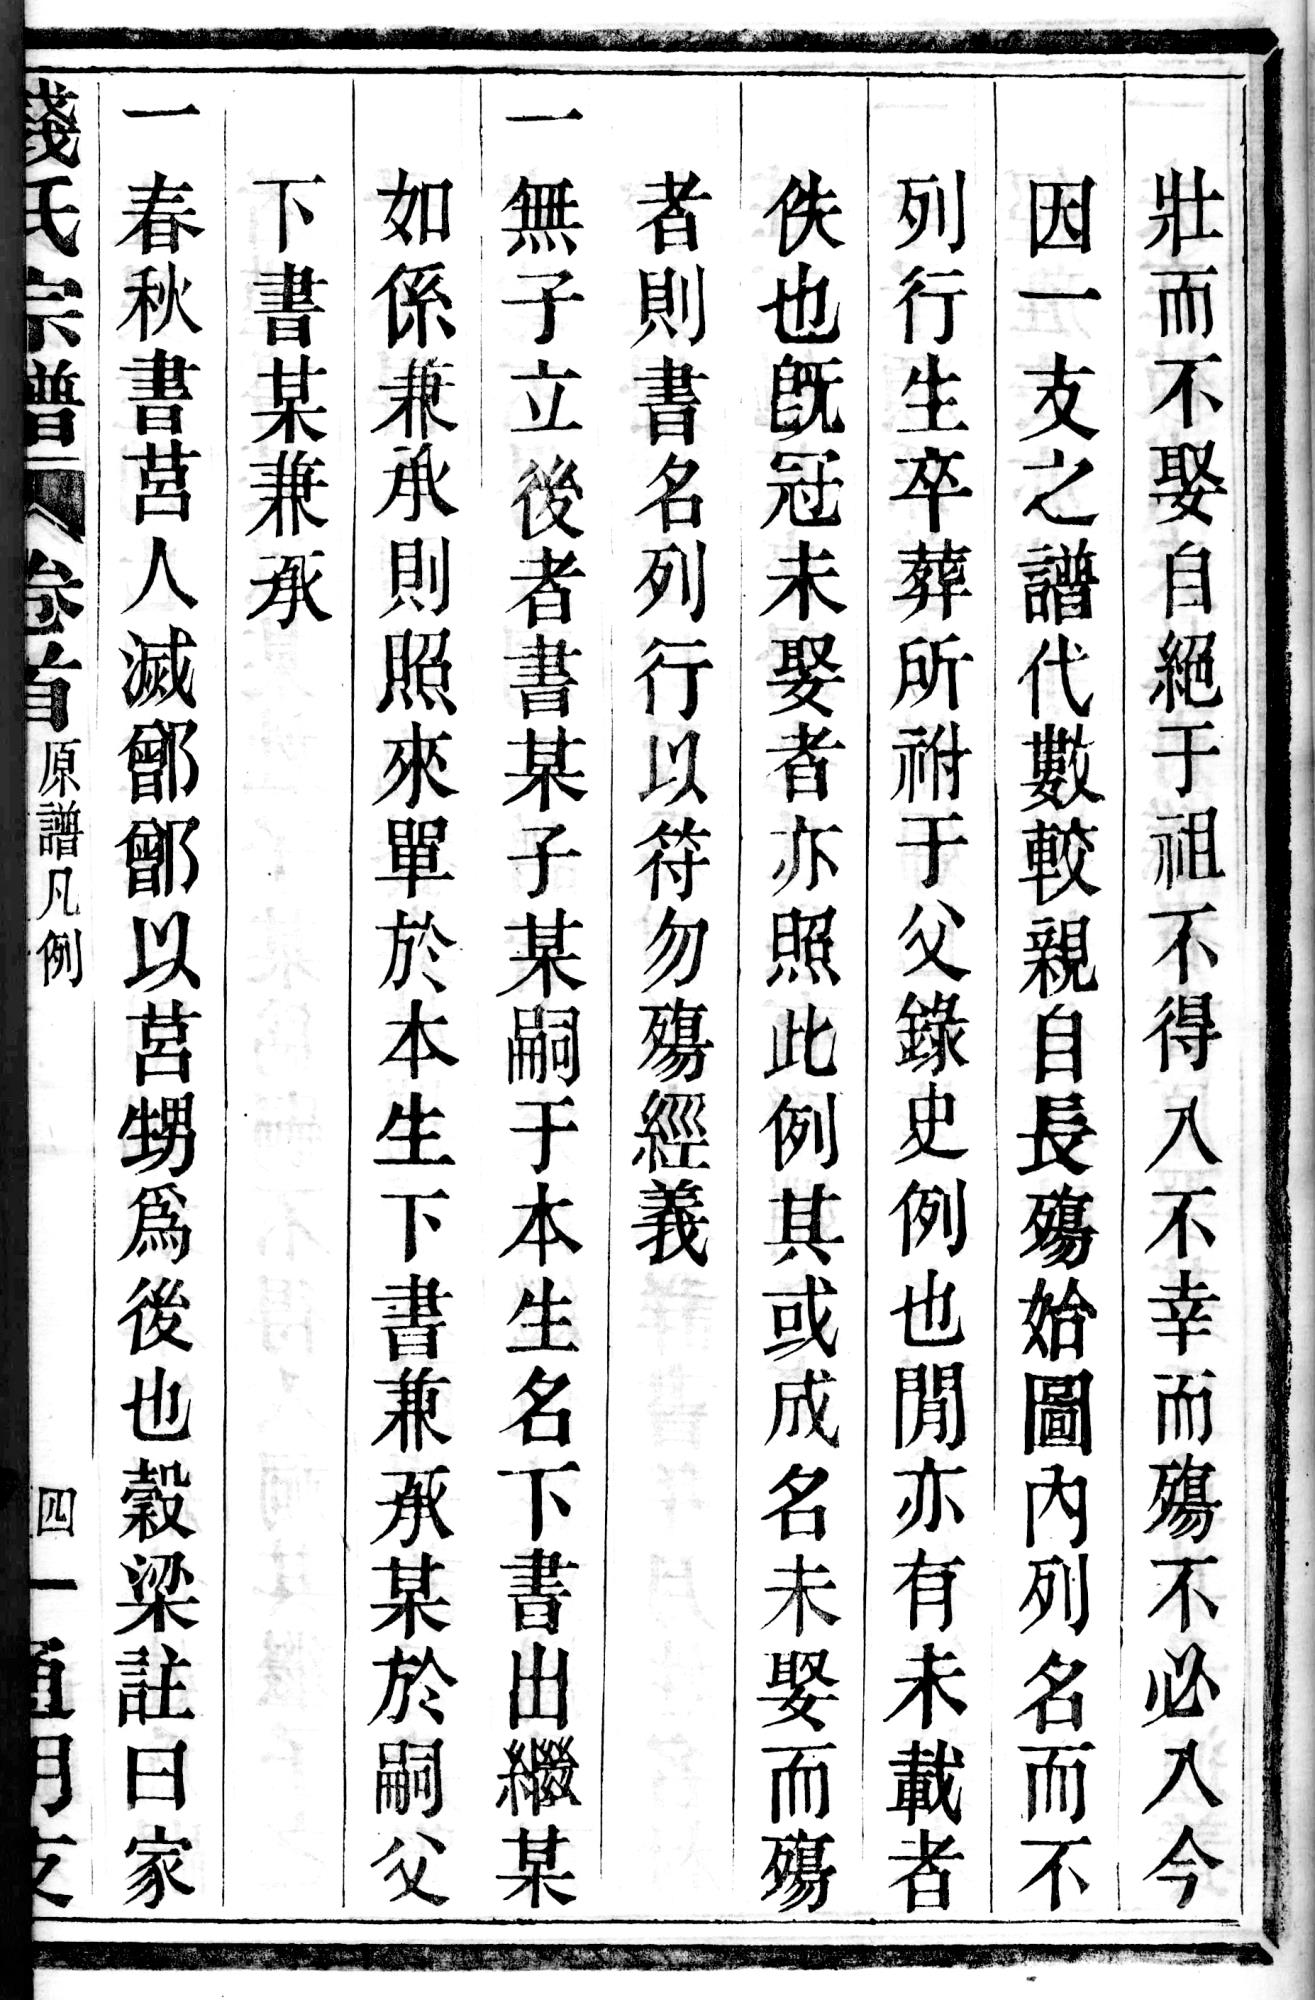 壯而不娶自絕于祖不得入不幸而殤不必入今
因一支之譜代數較親自長殤始圖內列名而不
列行生卒葬所祔于父錄史例也閒亦有未載者
佚也旣冠未娶者亦照此例其或成名未娶而殤
者則書名列行以符勿殤經義
一無子立後者書某子某嗣于本生名下書出繼某
如係兼承則照來單於本生下書兼承某於嗣父
下書某兼承
一春秋書莒人滅鄫鄫以莒甥爲後也穀梁註曰家
錢氏宗譜 卷首 原譜凡例 四 一 通明支